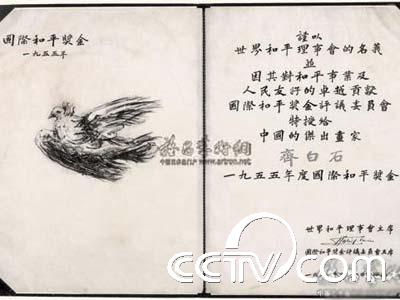 國際和平獎金
一九五五年
謹以
世界和平理事會的名義
並
因其對和平事業及
人民友好的卓越貢獻
國際和平獎金評議委員會
特授給
中國的傑出畫家
齊白石
一九五五年度國際和平獎金
世界和平理事會主席
國際和平獎金評議委員會主席
www.artron.net
CCTV.com